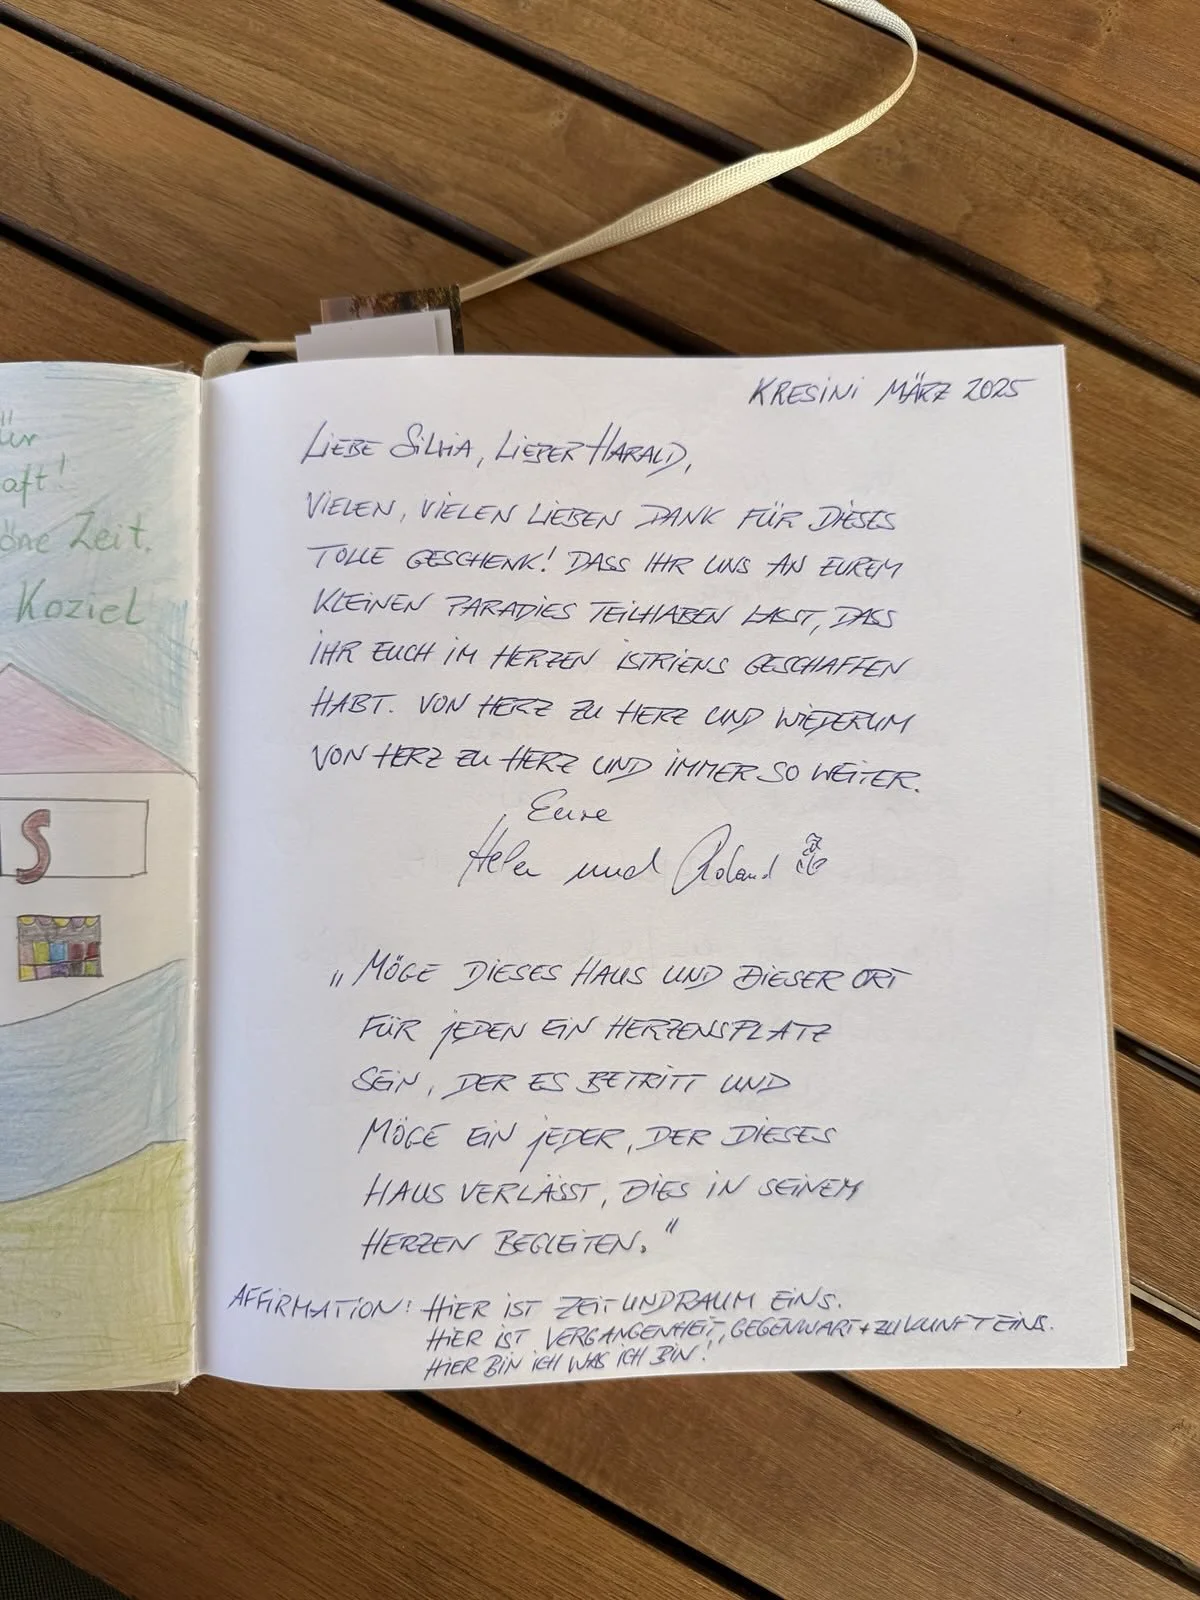 ür
aft!
öne Zeit.
Koziel
S
KRESINI MÄRZ 2025
LIEBE SILVIA, LIEBER HARALD,
VIELEN, VIELEN LIEBEN DANK FÜR DIESES
TOLLE GESCHENK! DASS IHR UNS AN EUREM
KLEINEN PARADIES TEILHABEN LASST, DASS
IHR EUCH IM HERZEN ISTRIENS GESCHAFFEN
HABT. VON HERZ ZU HERZ UND WIEDERUM
VON HERZ ZU HERZ UND IMMER SO WEITER.
Eure
Helen und Roland
„MÖGE DIESES HAUS UND DIESER ORT
FÜR JEDEN EIN HERZENSPLATZ
SEIN, DER ES BETRITT UND
MÖGE EIN JEDER, DER DIESES
HAUS VERLÄSST, DIES IN SEINEM
HERZEN BEGLEITEN."
AFFIRMATION: HIER IST ZEIT UND RAUM EINS.
HIER IST VERGANGENHEIT, GEGENWART + ZUKUNFT EINS.
HIER BIN ICH WAS ICH BIN!